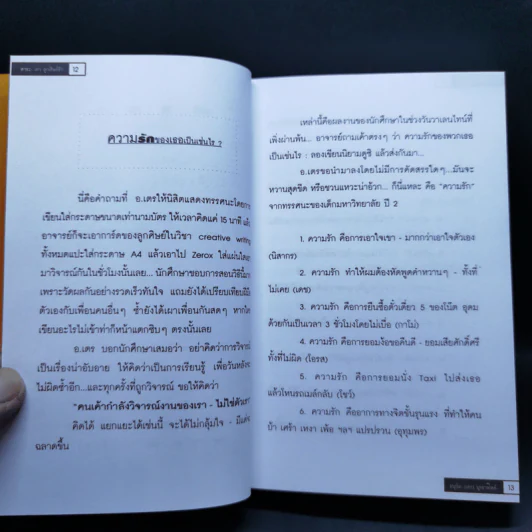 12
ความรักของเธอเป็นเช่นไร ?
นี่คือคำถามที่ อ.เตรให้นิสิตแสดงทรรศนะโดยการ
เขียนใส่กระดาษขนาดเท่านามบัตร ให้เวลาคิดแค่ 15 นาที แล้ว
อาจารย์ก็จะเอาการ์ดของลูกศิษย์ในวิชา creative writing
ทั้งหมดแปะใส่กระดาษ A4 แล้วเอาไป Zerox ใส่แผ่นใส
มาวิจารณ์กันในชั่วโมงนั้นเลย... นักศึกษาชอบการสอนวิธีนี้
เพราะวัดผลกันอย่างรวดเร็วทันใจ แถมยังได้เปรียบเทียบฝีมือ
ตัวเองกับเพื่อนคนอื่นๆ ซ้ำยังได้เผาเพื่อนกันสดๆ หาก
เขียนอะไรไม่เข้าท่าก็หน้าแตกซิบๆ ตรงนั้นเลย
อ.เตร บอกนักศึกษาเสมอว่า อย่าคิดว่าการวิจารณ์
เป็นเรื่องน่าอับอาย ให้คิดว่าเป็นการเรียนรู้ เพื่อวันหลัง
ไม่ผิดซ้ำอีก...และทุกครั้งที่ถูกวิจารณ์ ขอให้คิดว่า
"คนเค้ากำลังวิจารณ์งานของเรา - ไม่ใช่ตัวเรา"
คิดได้ แยกแยะได้เช่นนี้ จะได้ไม่กลุ้มใจ - มีแต่
ฉลาดขึ้น
เหล่านี้คือผลงานของนักศึกษาในช่วงวันวาเลนไทน์ที่
เพิ่งผ่านพ้น... อาจารย์ถามเค้าตรงๆ ว่า ความรักของพวกเธอ
เป็นเช่นไร : ลองเขียนนิยามดูซิ แล้วส่งกันมา...
อ.เตรขอนำมาลงโดยไม่มีการคัดสรรใดๆ...มันจะ
หวานสุดขีด หรือชวนแหวะน่าอ้วก... ก็นี่แหละ คือ "ความรัก"
จากทรรศนะของเด็กมหาวิทยาลัย ปี 2
1. ความรัก คือการเอาใจเขา - มากกว่าเอาใจตัวเอง
(นิสากร)
2. ความรัก ทำให้ผมต้องหัดพูดคำหวานๆ - ทั้งที่
ไม่เคย (เดช)
3. ความรัก คือการยืนซื้อตั๋วเดี่ยว 5 ของโน๊ต อุดม
ด้วยกันเป็นเวลา 3 ชั่วโมงโดยไม่เบื่อ (กาโม่)
4. ความรัก คือการยอมง้อขอคืนดี - ยอมเสียศักดิ์ศรี
ทั้งที่ไม่ผิด (โอรส)
5. ความรัก คือการยอมนั่ง Taxi ไปส่งเธอ
แล้วโหนรถเมล์กลับ (โชว์)
6. ความรัก คืออาการทางจิตขั้นรุนแรง ที่ทำให้คน
บ้า เศร้า เหงา เพ้อ ฯลฯ แปรปรวน (อุทุมพร)
13